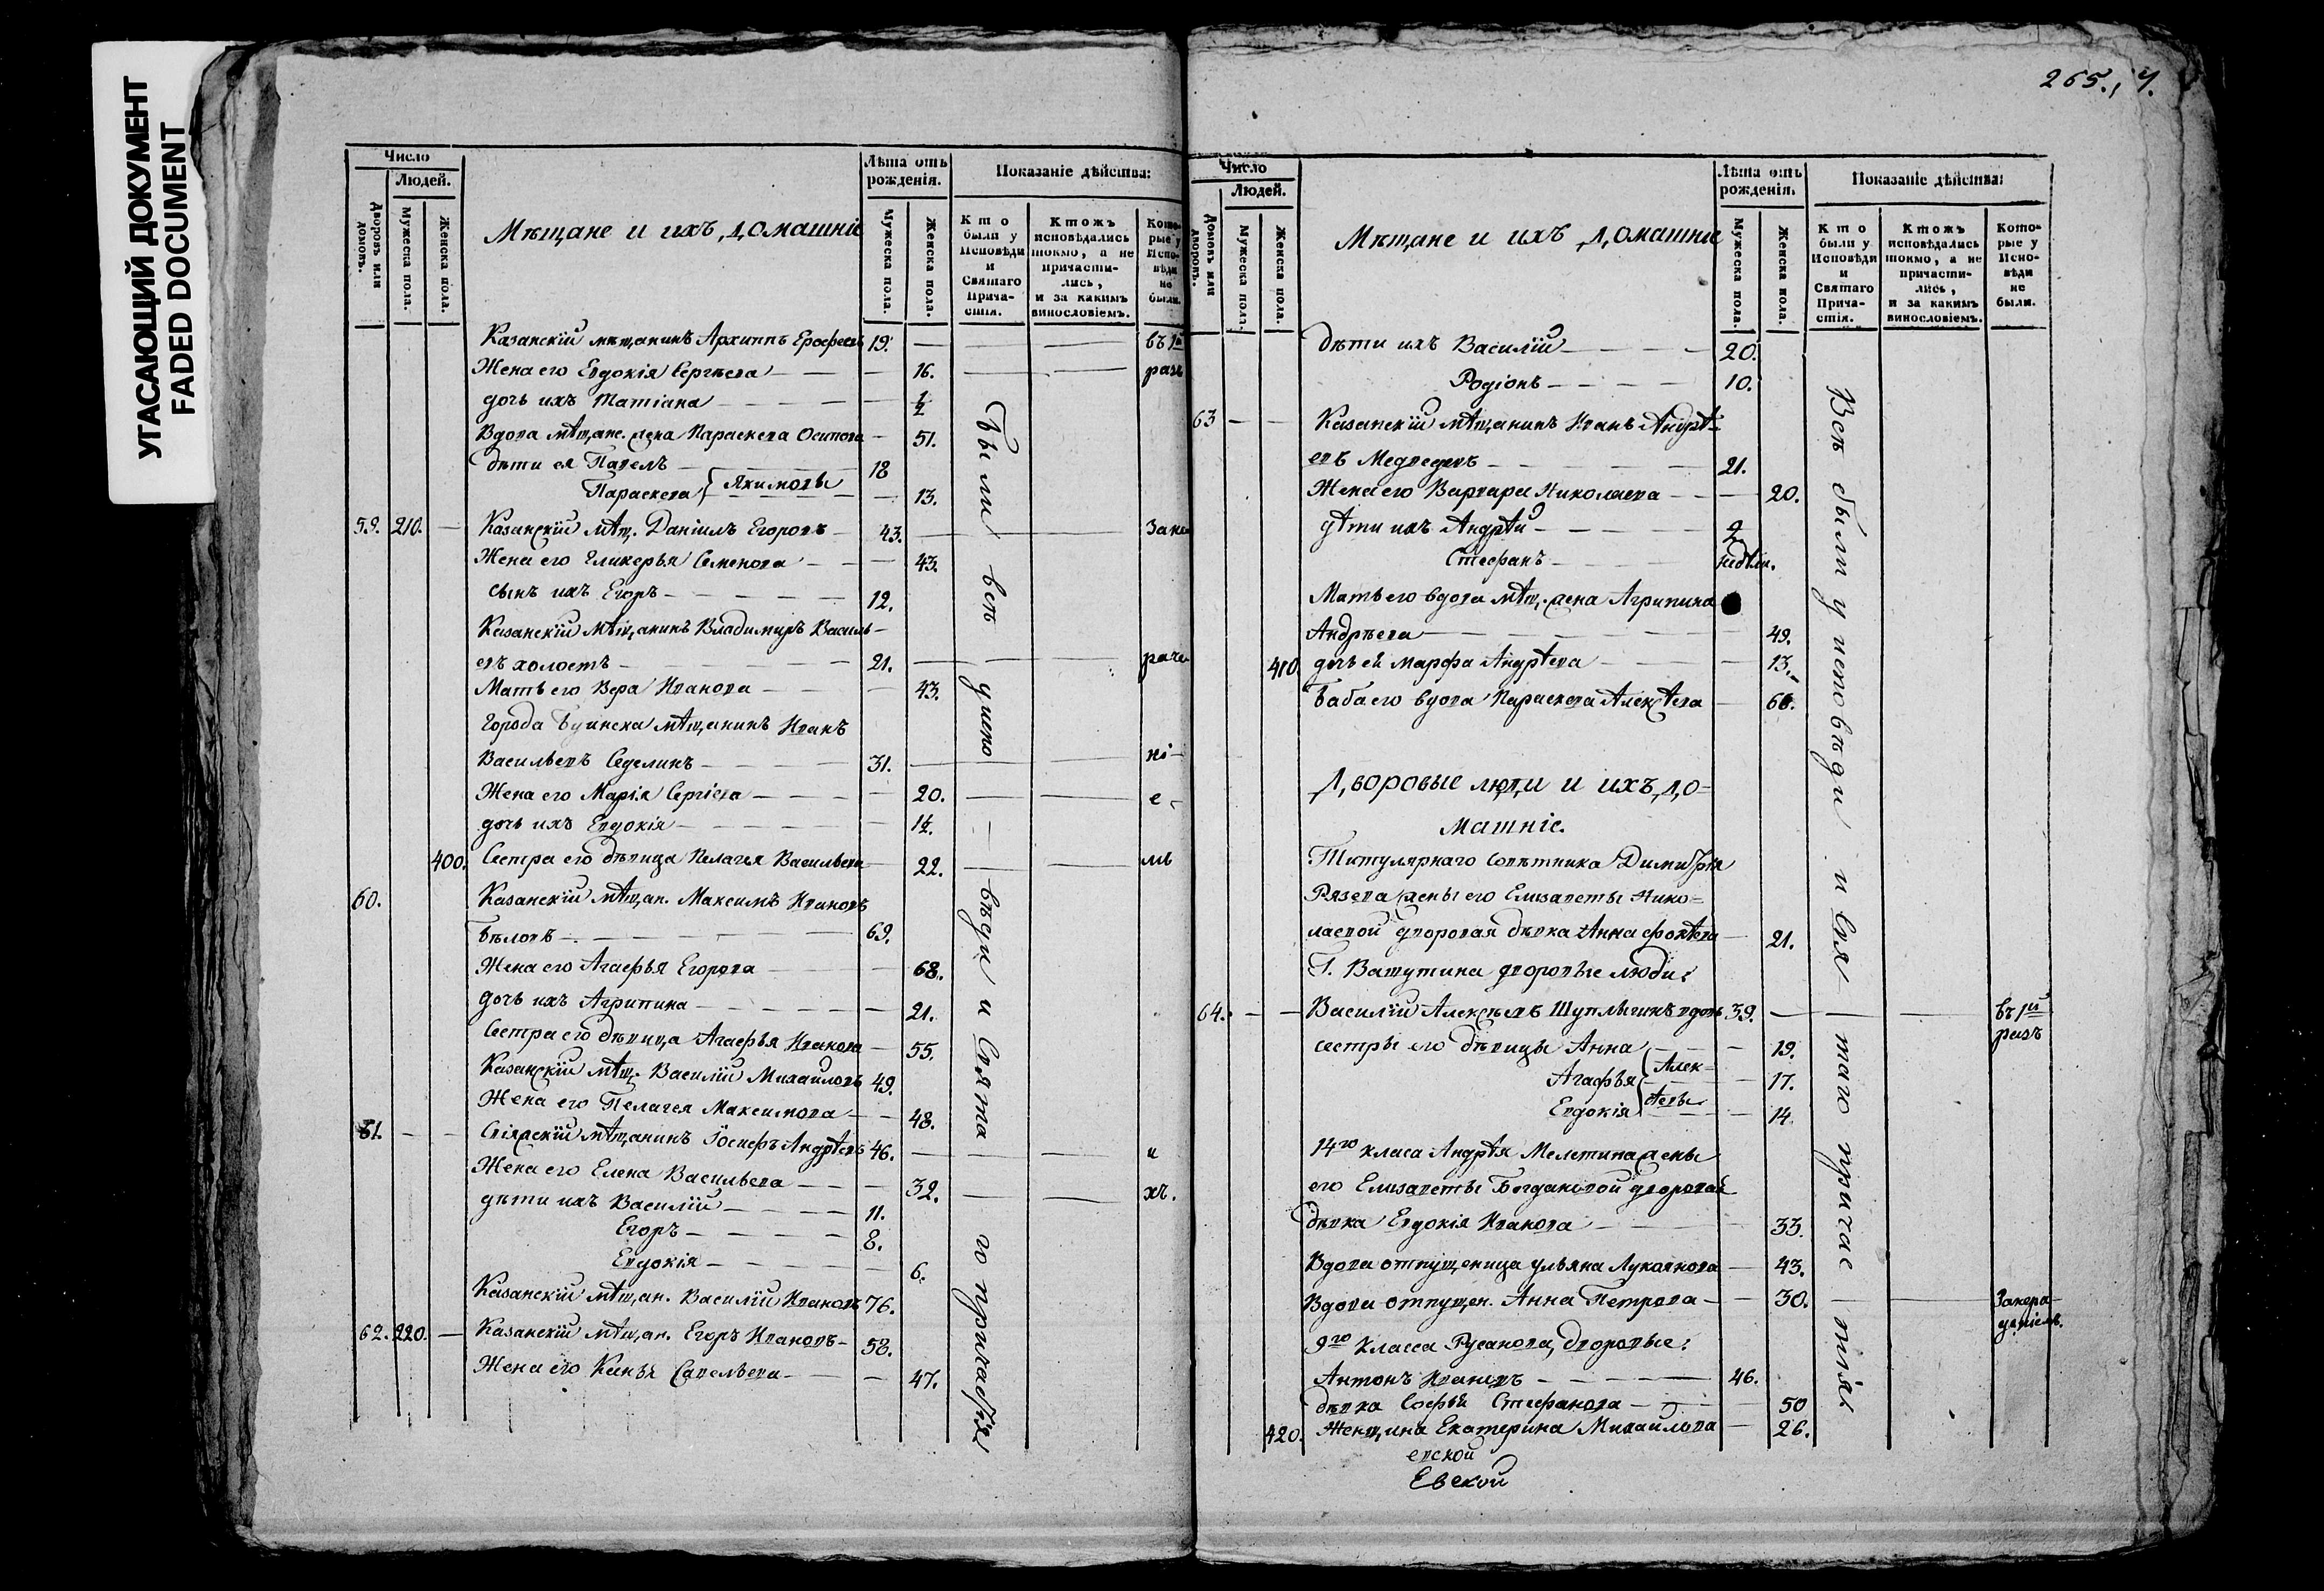 УГАСАЮЩИЙ ДОКУМЕНТ
FADED DOCUMENT
265., 7.
Число
Людей.
Дворовъ или домовъ.
Мужеска пола.
Женска пола.
Мѣщане и ихъ домашніе
Лѣта отъ рожденія.
Мужеска пола.
Женска пола.
Показаніе дѣйства:
Кто были у Исповѣди и Святаго Прича-стія.
Ктожъ исповѣдались токмо, а не причасти-лись, и за какимъ винословіемъ.
Кото-рые у Испо-вѣди не были.
Казанскій мѣщанинъ Архиппъ Ерофеевъ 19. — — въ 1й
Жена его Евдокія Сергѣева — — — 16. — — разъ
дочь ихъ Татіана — — — — — ½
Вдова мѣщанс. жена Параскева Осипова — 51.
дѣти ея Павелъ — — — — 18
Параскева { Якимовы — 13.
59. 210. — Казанскій мѣщ. Даніилъ Егоровъ — 43. — — Зане
Жена его Гликерья Семенова — — — 43.
сынъ ихъ Егоръ — — — — — 12.
Казанскій мѣщанинъ Владимиръ Василь-
евъ холостъ — — — — — 21. — — раче
Мать его Вера Иванова — — — 43.
Города Буинска мѣщанинъ Иванъ
Васильевъ Седелинъ — — — — 31. — — ні-
Жена его Марія Сергіева — — — — 20. — — е-
дочь ихъ Евдокія — — — — — 1½.
400. Сестра его дѣвица Пелагья Васильева — 22. — — мъ
60. Казанскій мѣщан. Максимъ Ивановъ
Бѣловъ — — — — — 69.
Жена его Агафья Егорова — — 68.
дочь ихъ Агрипина — — — — — 21.
Сестра его дѣвица Агафья Иванова — 55.
Казанскій мѣщ. Василій Михаиловъ 49.
Жена его Пелагея Максимова — — 48.
61. — — Свіяжскій мѣщанинъ Іосифъ Андрѣевъ 46. — — и
Жена его Елена Васильева — — — 32. — — хъ.
дѣти ихъ Василій — — — — 11.
Егоръ — — — — 8.
Евдокія — — — — — 6.
Казанскій мѣщан. Василій Ивановъ 76.
62. 220. — Казанскій мѣщан. Егоръ Ивановъ — 58.
Жена его Савельева — — — 47.
Были всѣ у испо-вѣди и Свята-го причастія
Число
Людей.
Домовъ или дворовъ.
Мужеска пола.
Женска пола.
Мѣщане и ихъ домашніе
Лѣта отъ рожденія.
Мужеска пола.
Женска пола.
Показаніе дѣйства:
Кто были у Исповѣди и Святаго Прича-стія.
Ктожъ исповѣдались токмо, а не причасти-лись, и за какимъ винословіемъ.
Кото-рые у Испо-вѣди не были.
дѣти ихъ Василій — — — — 20.
Родіонъ — — — — 10.
63 — — Казанскій мѣщанинъ Иванъ Андрѣ-
евъ Медведевъ — — — — — 21.
Жена его Варвара Николаева — — — 20.
дѣти ихъ Андрѣй — — — — — 2
Стефанъ — — — — недѣли.
Мать его вдова мѣщ. жена Агрипина
Андрѣева — — — — — 49.
410. дочь ей Марфа Андрѣева — — — 13.
Баба его вдова Параскева Алексѣева — 66.
Дворовые люди и ихъ до-
машніе.
Титулярнаго Совѣтника Димитрія
жены его Елизаветы Нико-
лаевой дворовая дѣвка Анна — 21.
Г. Ватутина дворовые люди:
64. — — Василій Алексѣевъ вдовъ 39. — — — въ 1й
разъ
сестры его дѣвицы Анна — — 19.
Агафья { Алек- — 17.
Евдокія { сѣевы — 14.
14го класа Андрѣя жены
его Елизаветы Богдановой дворовая
дѣвка Евдокія Иванова — — — 33.
Вдова отпущеница Ульяна — 43.
Вдова отпущен. Анна Петрова — — 30. — — Занера-
деніемъ.
9го класса Русанова, дворовые:
Антонъ Ивановъ — — — — 46.
дѣвка Софья Стефанова — — — 50
420. Женщина Екатерина Михайлова — 26.
евской
Евской
Всѣ были у исповѣди и Свя-таго причас-тія